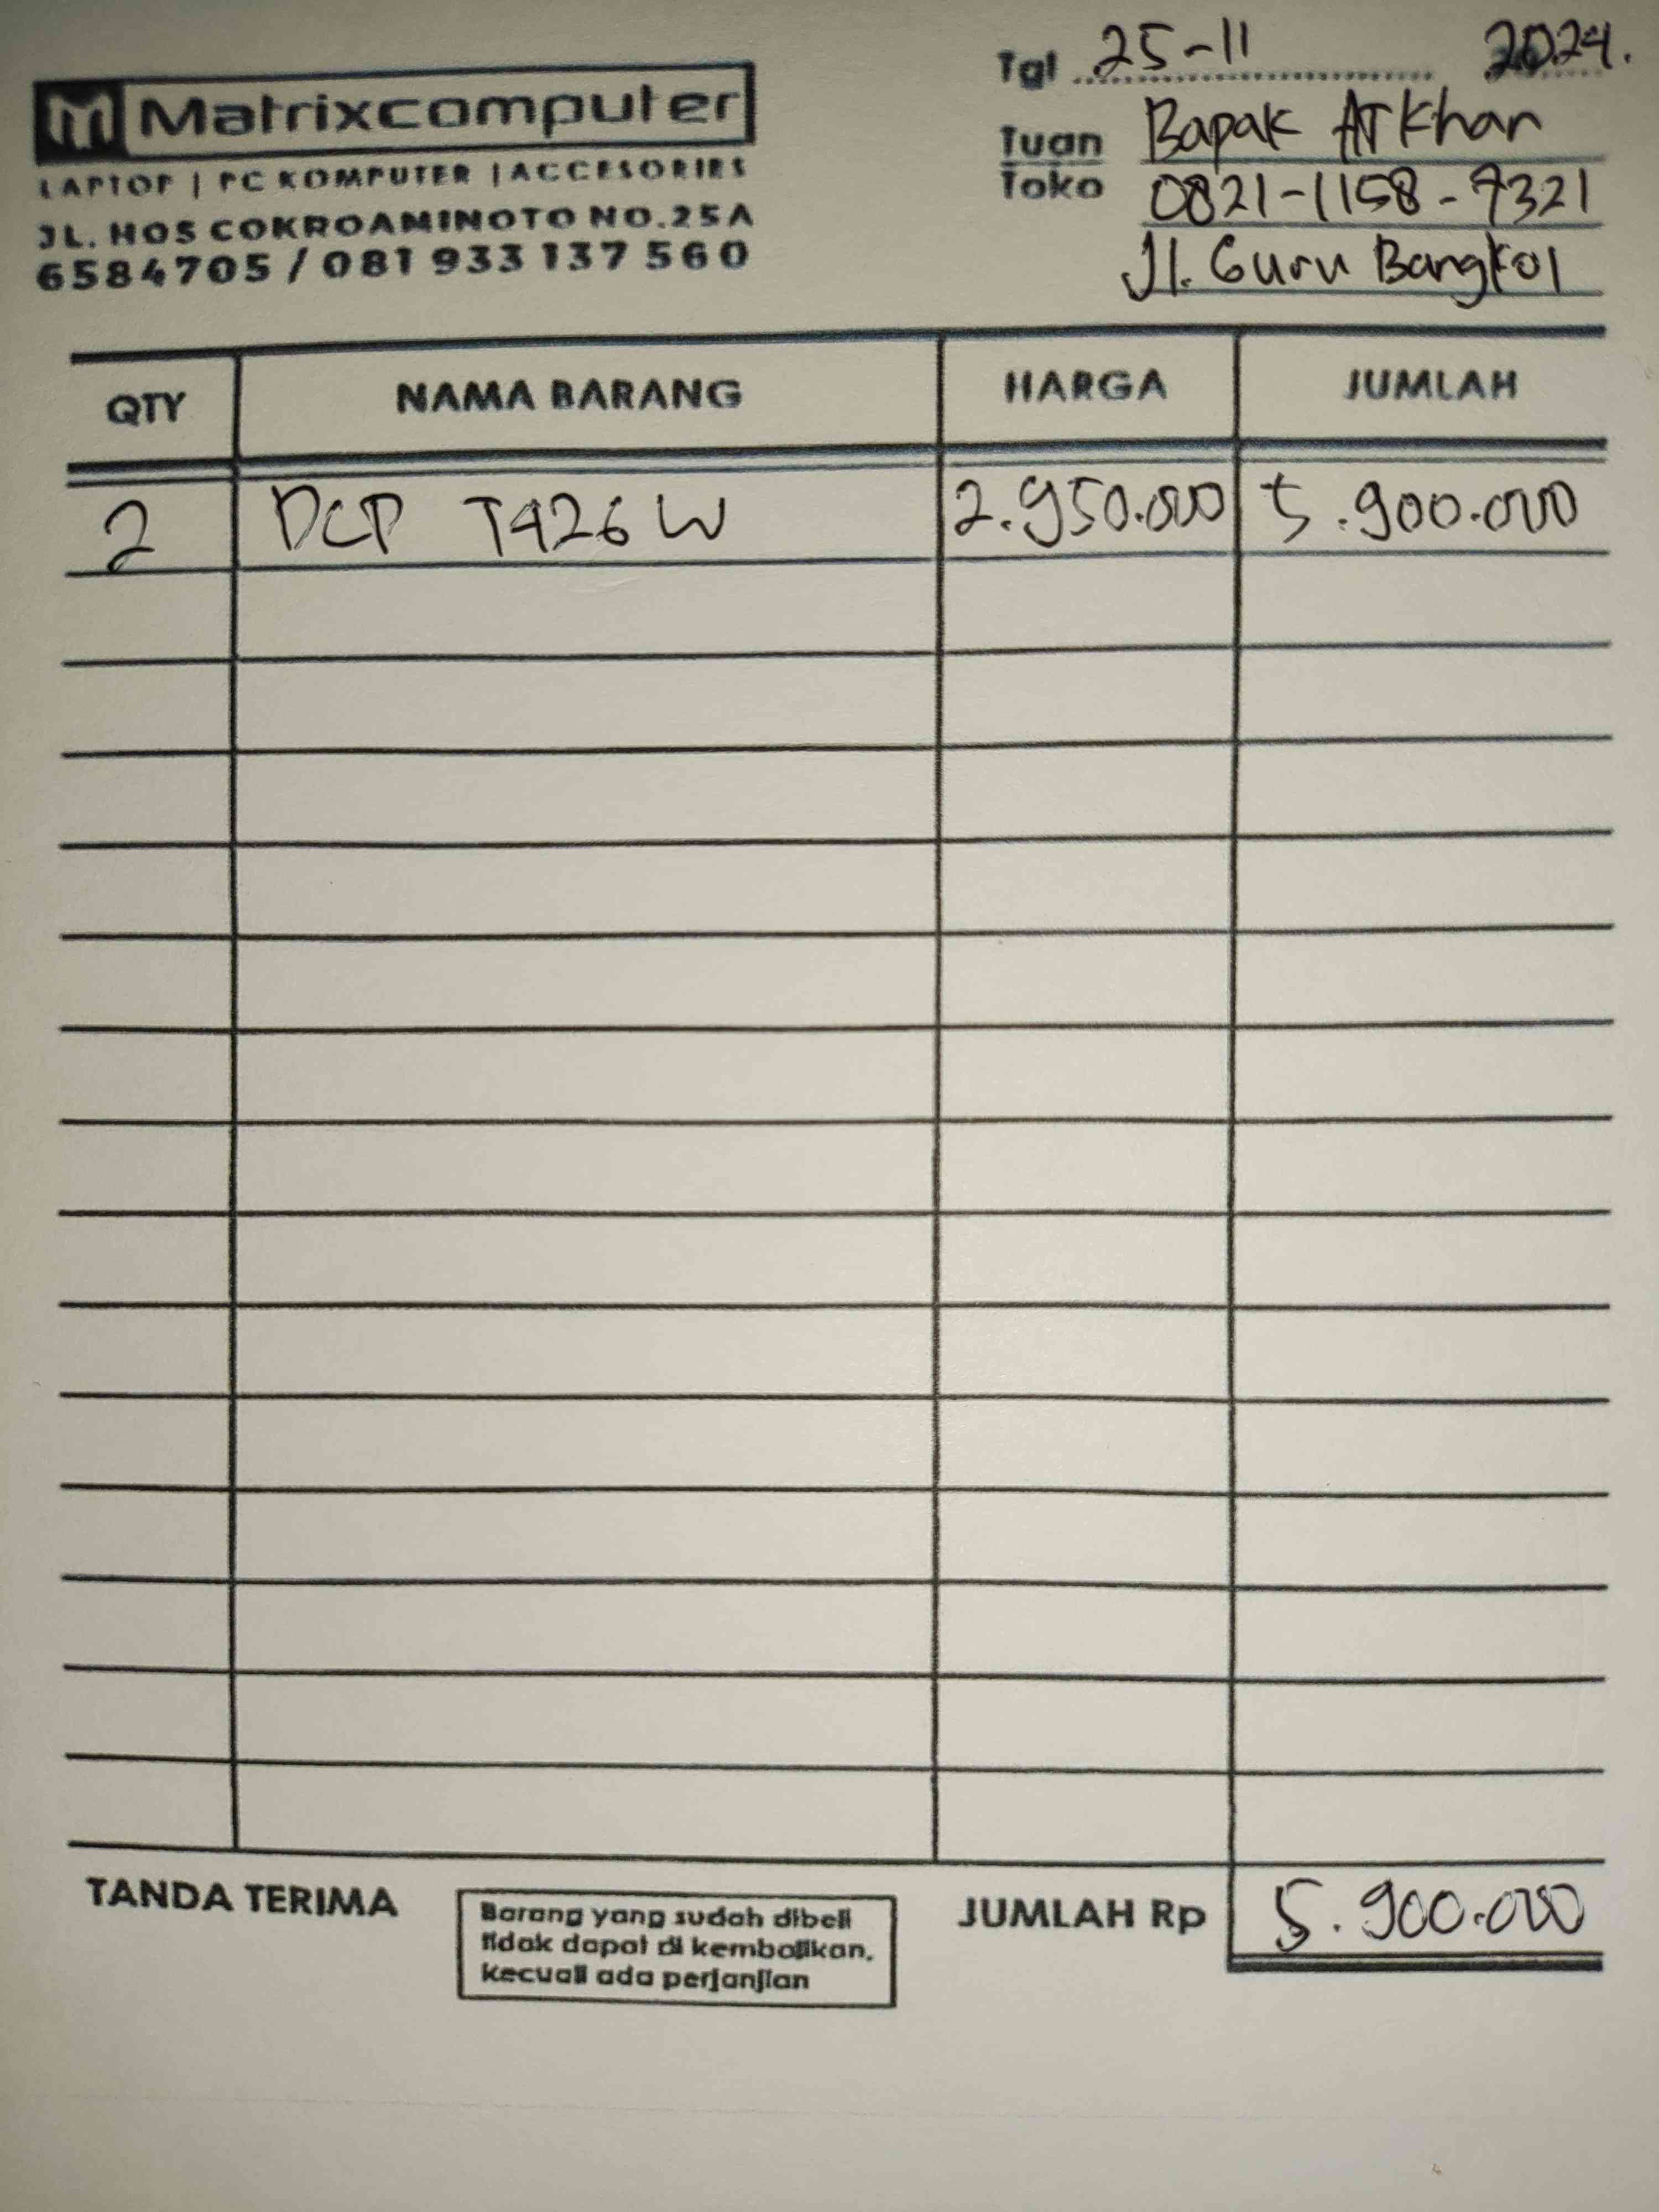 Matrixcomputer
LAPTOP | PC KOMPUTER | ACCESORIES
JL. HOS COKROAMINOTO NO.25A
6584705 / 081 933 137 560
Tgl 25-11 2024.
Tuan Bapak Arkhan
Toko 0821-1158-9321
Jl. Guru Bangkol
QTY NAMA BARANG HARGA JUMLAH
2 DCP T426W 2.950.000 5.900.000
TANDA TERIMA
Barang yang sudah dibeli
tidak dapat di kembalikan,
kecuali ada perjanjian
JUMLAH Rp 5.900.000